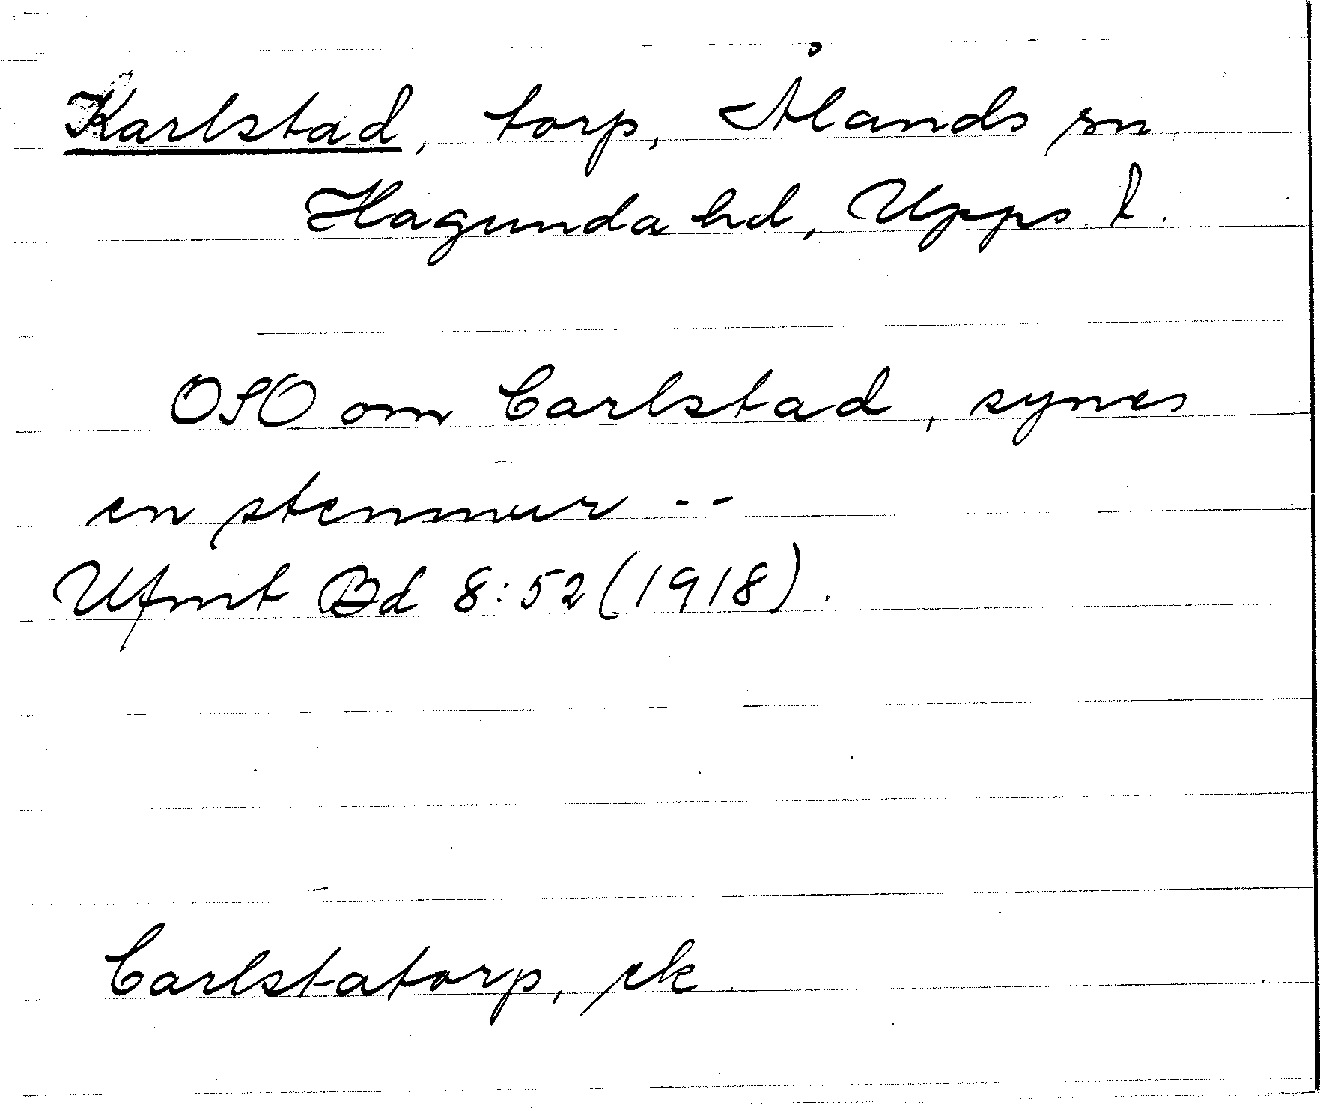 Karlstad, torp, Ålands sn
Hagunda hd, Upps. l.
OSO om Carlstad, synes
en stenmur --
Ufmt Bd 8:52 (1918).
Carlstatorp, ek